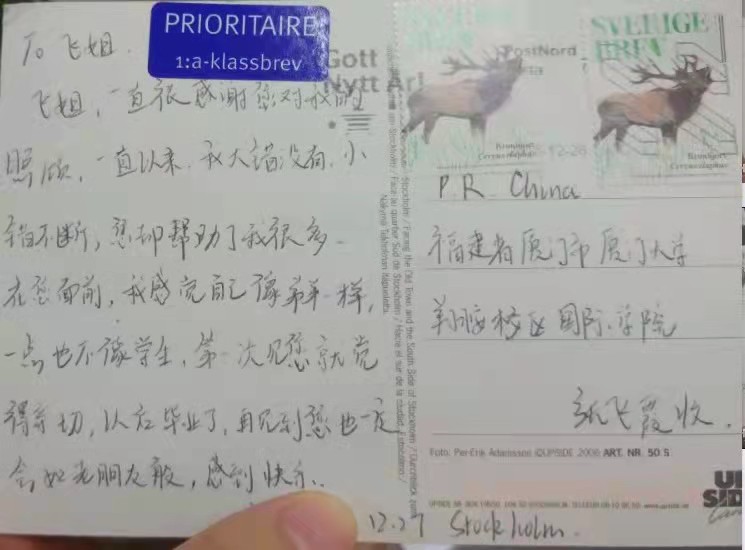 To 飞姐.
飞姐,一直很感谢您对我的
照顾,一直以来,我大错没有,小
错不断,您却帮助了我很多.
在您面前,我感觉自己像弟弟一样,
一点也不像学生,第一次见您就觉
得亲切,以后毕业了,再见到您也一定
会如老朋友般,感到快乐.
12.27 Stockholm.
PRIORITAIRE
1:a-klassbrev
Gott
Nytt År!
PostNord
SVERIGE
BREV
SVERIGE
BREV
Kronhjort
Cervus elaphus
Kronhjort
Cervus elaphus
P.R. China
福建省厦门市厦门大学
翔安校区国际学院
张飞霞收.
Stockholm / Facing the Old Town and the South Side of Stockholm
Foto: Per-Erik Adamsson ©UPSIDE 2006 ART. NR. 50 S